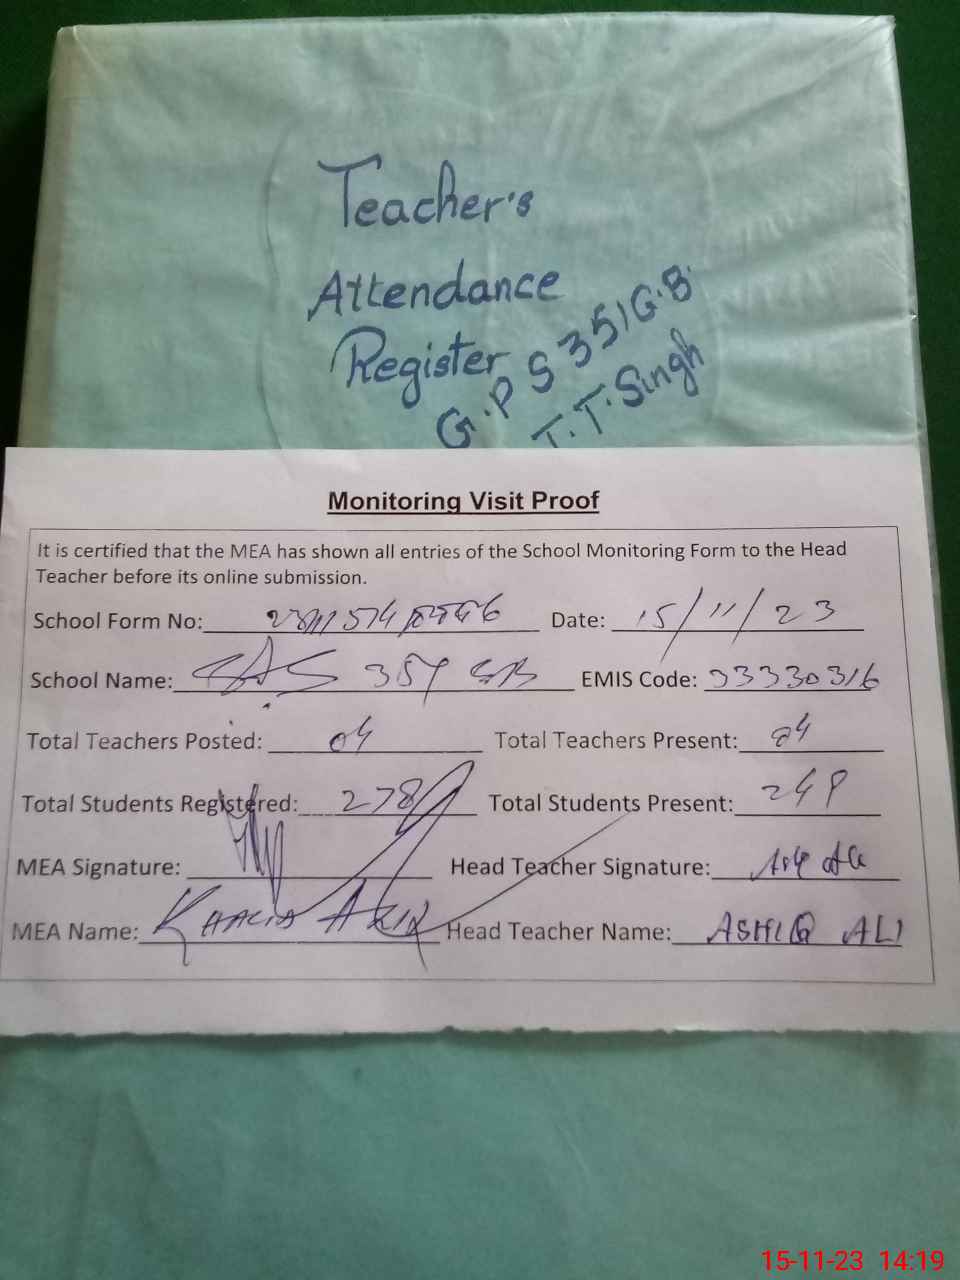 Teacher's
Attendance
Register
G.P S 351 G.B.
T.T.Singh
Monitoring Visit Proof
It is certified that the MEA has shown all entries of the School Monitoring Form to the Head
Teacher before its online submission.
School Form No: Date: 15/11/23
School Name: EMIS Code: 33330316
Total Teachers Posted: 04 Total Teachers Present: 04
Total Students Registered: 278 Total Students Present:
MEA Signature: Head Teacher Signature:
MEA Name: Head Teacher Name: ASHIQ ALI
15-11-23 14:19